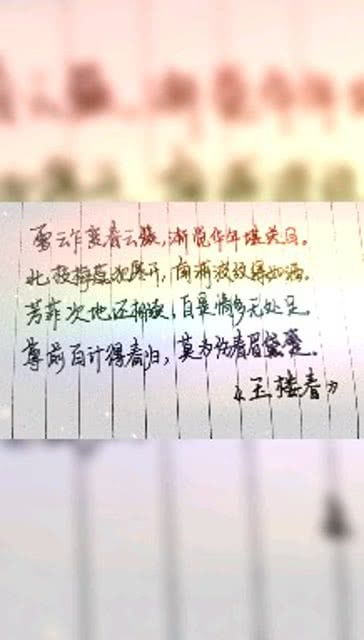 雪云乍变春云簇,渐觉华年堪目。
北枝梅蕊犯寒开,南浦波纹得如酒。
芳菲次地还相续,自是情多无处足。
尊前百计得春归,莫为伤春眉黛蹙。
《玉楼春》